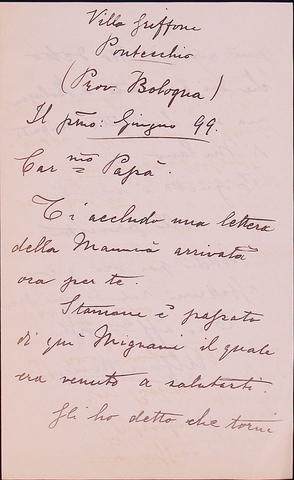 Villa Griffone
Pontecchio
(Prov. Bologna)
Il pmo: Giugno 99.
Car mo Papà.
Ti accludo una lettera
della Mammà arrivata
ora per te.
Stamane è passato
di quì Mignani il quale
era venuto a salutarti.
Gli ho detto che torni